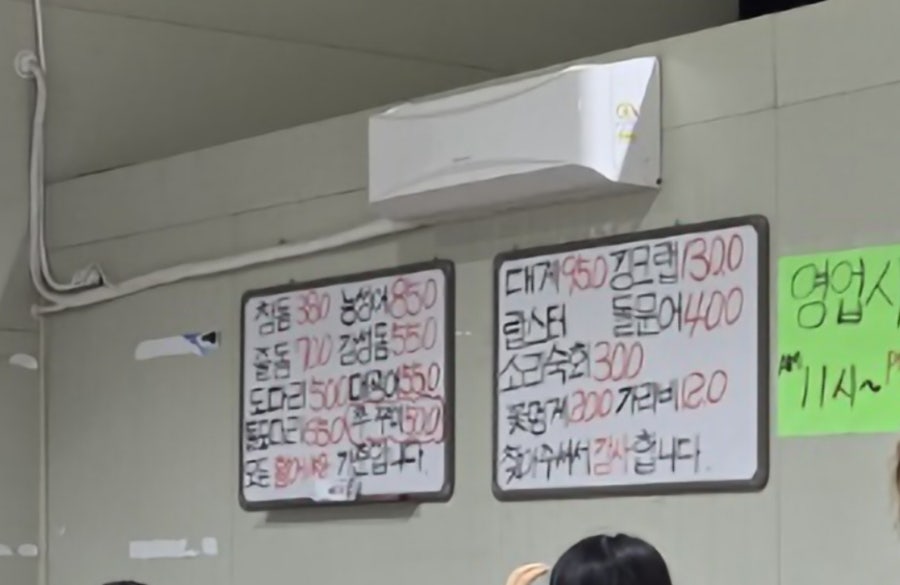 참돔 380 농성어 850
줄돔 700 감성돔 550
도다리 500 대광어 550
돌도다리 650 쭈꾸미 500
모든 기준입니다.
대게 950 킹크랩 1300
랍스터 돌문어 400
소라숙회 300
꽃멍게 200 가리비 120
찾아주셔서 감사합니다.
영업시
AM 11시~